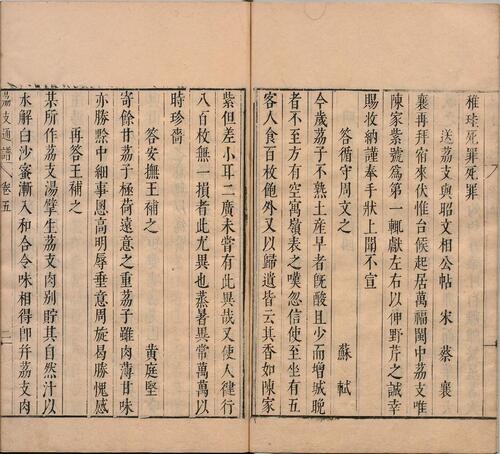 稚珪死罪死罪
送荔支與昭文相公帖 宋 蔡襄
襄再拜宿來伏惟台候起居萬福閩中荔支唯
陳家紫號為第一輒獻左右以伸野芹之誠幸
賜收納謹奉手狀上聞不宣
答循守周文之 蘇軾
今歲荔子不熟土産早者旣酸且少而增城晚
者不至方有空寓嶺表之嘆忽信使至坐有五
客人食百枚飽外又以歸遺皆云其香如陳家
紫但差小耳二廣未嘗有此異哉又使人健行
八百枚無一損者此尤異也蒸暑異常萬萬以
時珍嗇
答安撫王補之 黃庭堅
寄餘甘荔子極荷遠意之重荔子雖肉薄甘味
亦勝黔中細事恩高明辱垂意周旋曷勝愧感
再答王補之
某所作荔支湯擘生荔支肉別貯其自然汁以
水解白沙蜜漸入和合令味相得卽幷荔支肉
荔支通譜 卷五 二